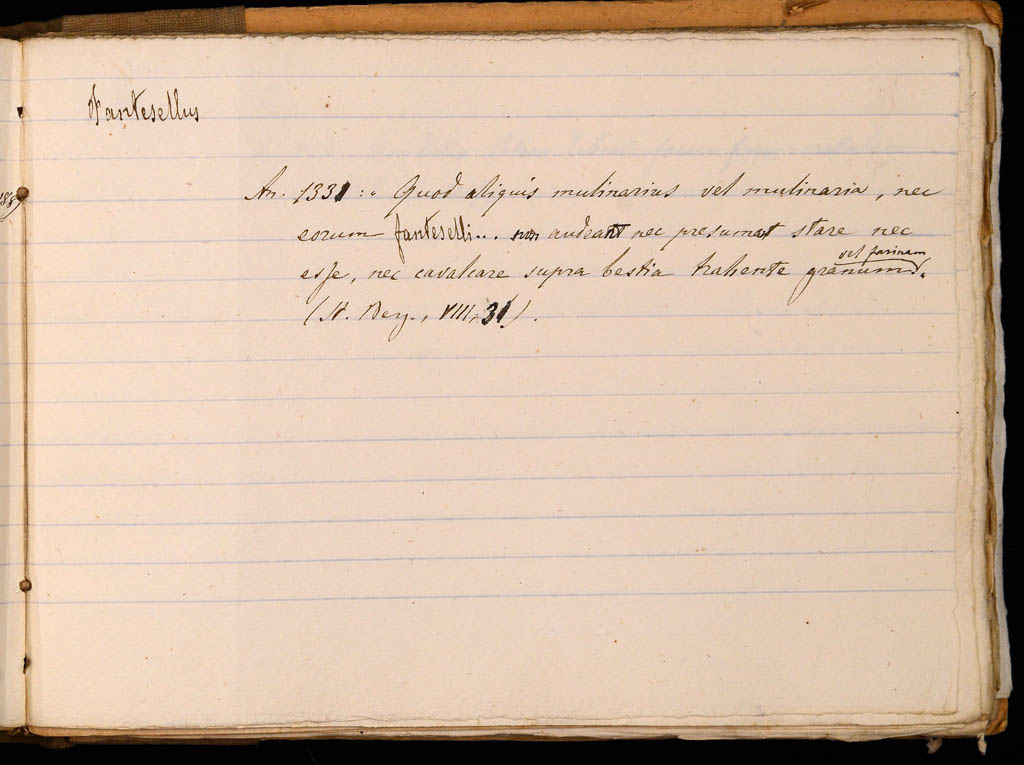 Fantesellus
An. 1331: « Quod aliquis mulinarius vel mulinaria, nec
eorum fanteselli... non audeant nec presumat stare nec
esse, nec cavalcare supra bestia trahente granum vel farinam.
(St. Berg., VIII, 31).